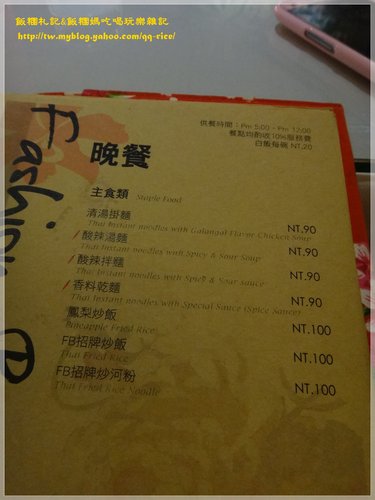 飯糰札記&飯糰媽吃喝玩樂雜記
http://tw.myblog.yahoo.com/qq-rice/
供餐時間：Pm 5:00 - Pm 12:00
餐點均酌收10%服務費
白飯每碗 NT,20
Fashion
晚餐
主食類 Staple Food
清湯掛麵 NT,90
Thai Instant noodles with Galangal Flavor Chicken Soup
/酸辣湯麵 NT,90
Thai Instant noodles with Spicy & Sour Soup
/酸辣拌麵 NT,90
Thai Instant noodles with Spicy & Sour sauce
/香料乾麵 NT,90
Thai Instant noodles with Special Sauce (Spice Sauce)
鳳梨炒飯 NT,100
Pineapple Fried Rice
FB招牌炒飯 NT,100
Thai Fried Rice
FB招牌炒河粉 NT,100
Thai Fried Rice Noodle